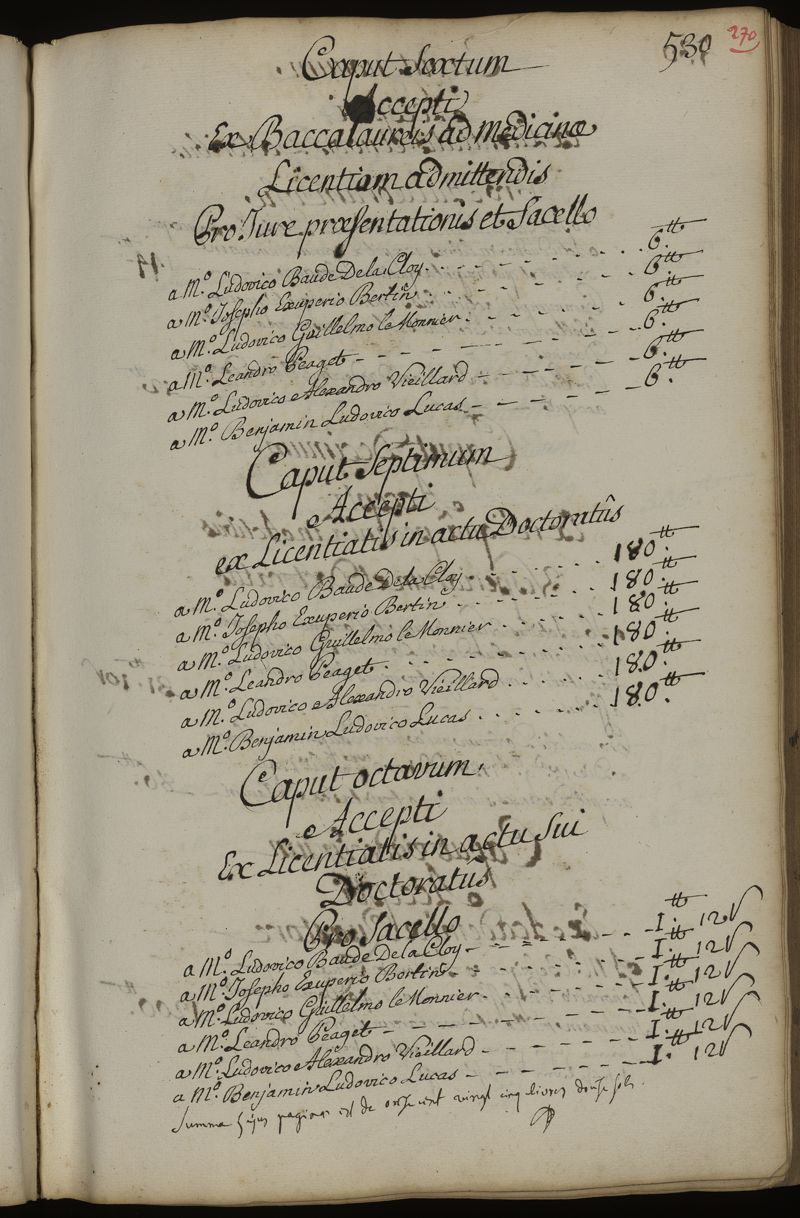 530 270
Caput Sextum
Accepti
Ex Baccalaureis ad medicinæ
Licentiam admittendis
Pro Jure præsentationis et Sacello
a M.° Ludovico Baude De la Cloy . . . . . . . 6.tt
a M.° Josepho Exuperio Bertin . . . . . . . 6.tt
a M.° Ludovico Guillelmo le Monnier . . . . . . . 6.tt
a M.° Leandro Peaget - - - - - - - 6.tt
a M.° Ludovico Alexandro Vieillard - - - - - - 6.tt
a M.° Benjamin Ludovico Lucas - - - - - - 6.tt
Caput Septimum
Accepti
ex Licentiatis in actu Doctoratûs
a M.° Ludovico Baude De la Cloy . . . . . . . 180.tt
a M.° Josepho Exuperio Bertin . . . . . . . 180.tt
a M.° Ludovico Guillelmo le Monnier . . . . . . 180.tt
a M.° Leandro Peaget . . . . . . . . . 180.tt
a M.° Ludovico Alexandro Vieillard . . . . . . 180.tt
a M.° Benjamin Ludovico Lucas . . . . . . . 180.tt
Caput octavum
Accepti
Ex Licentiatis in actu Sui
Doctoratus
Pro Sacello
a M.° Ludovico Baude De la Cloy - - - - - - - I.tt 12 s
a M.° Josepho Exuperio Bertin - - - - - - - I.tt 12 s
a M.° Ludovico Guillelmo le Monnier - - - - - - - I.tt 12 s
a M.° Leandro Peaget - - - - - - - - I.tt 12 s
a M.° Ludovico Alexandro Vieillard - - - - - - I.tt 12 s
a M.° Benjamin Ludovico Lucas - - - - - - - I.tt 12 s
Summa hujus paginæ est de onze cent vingt cinq livres douze sols.